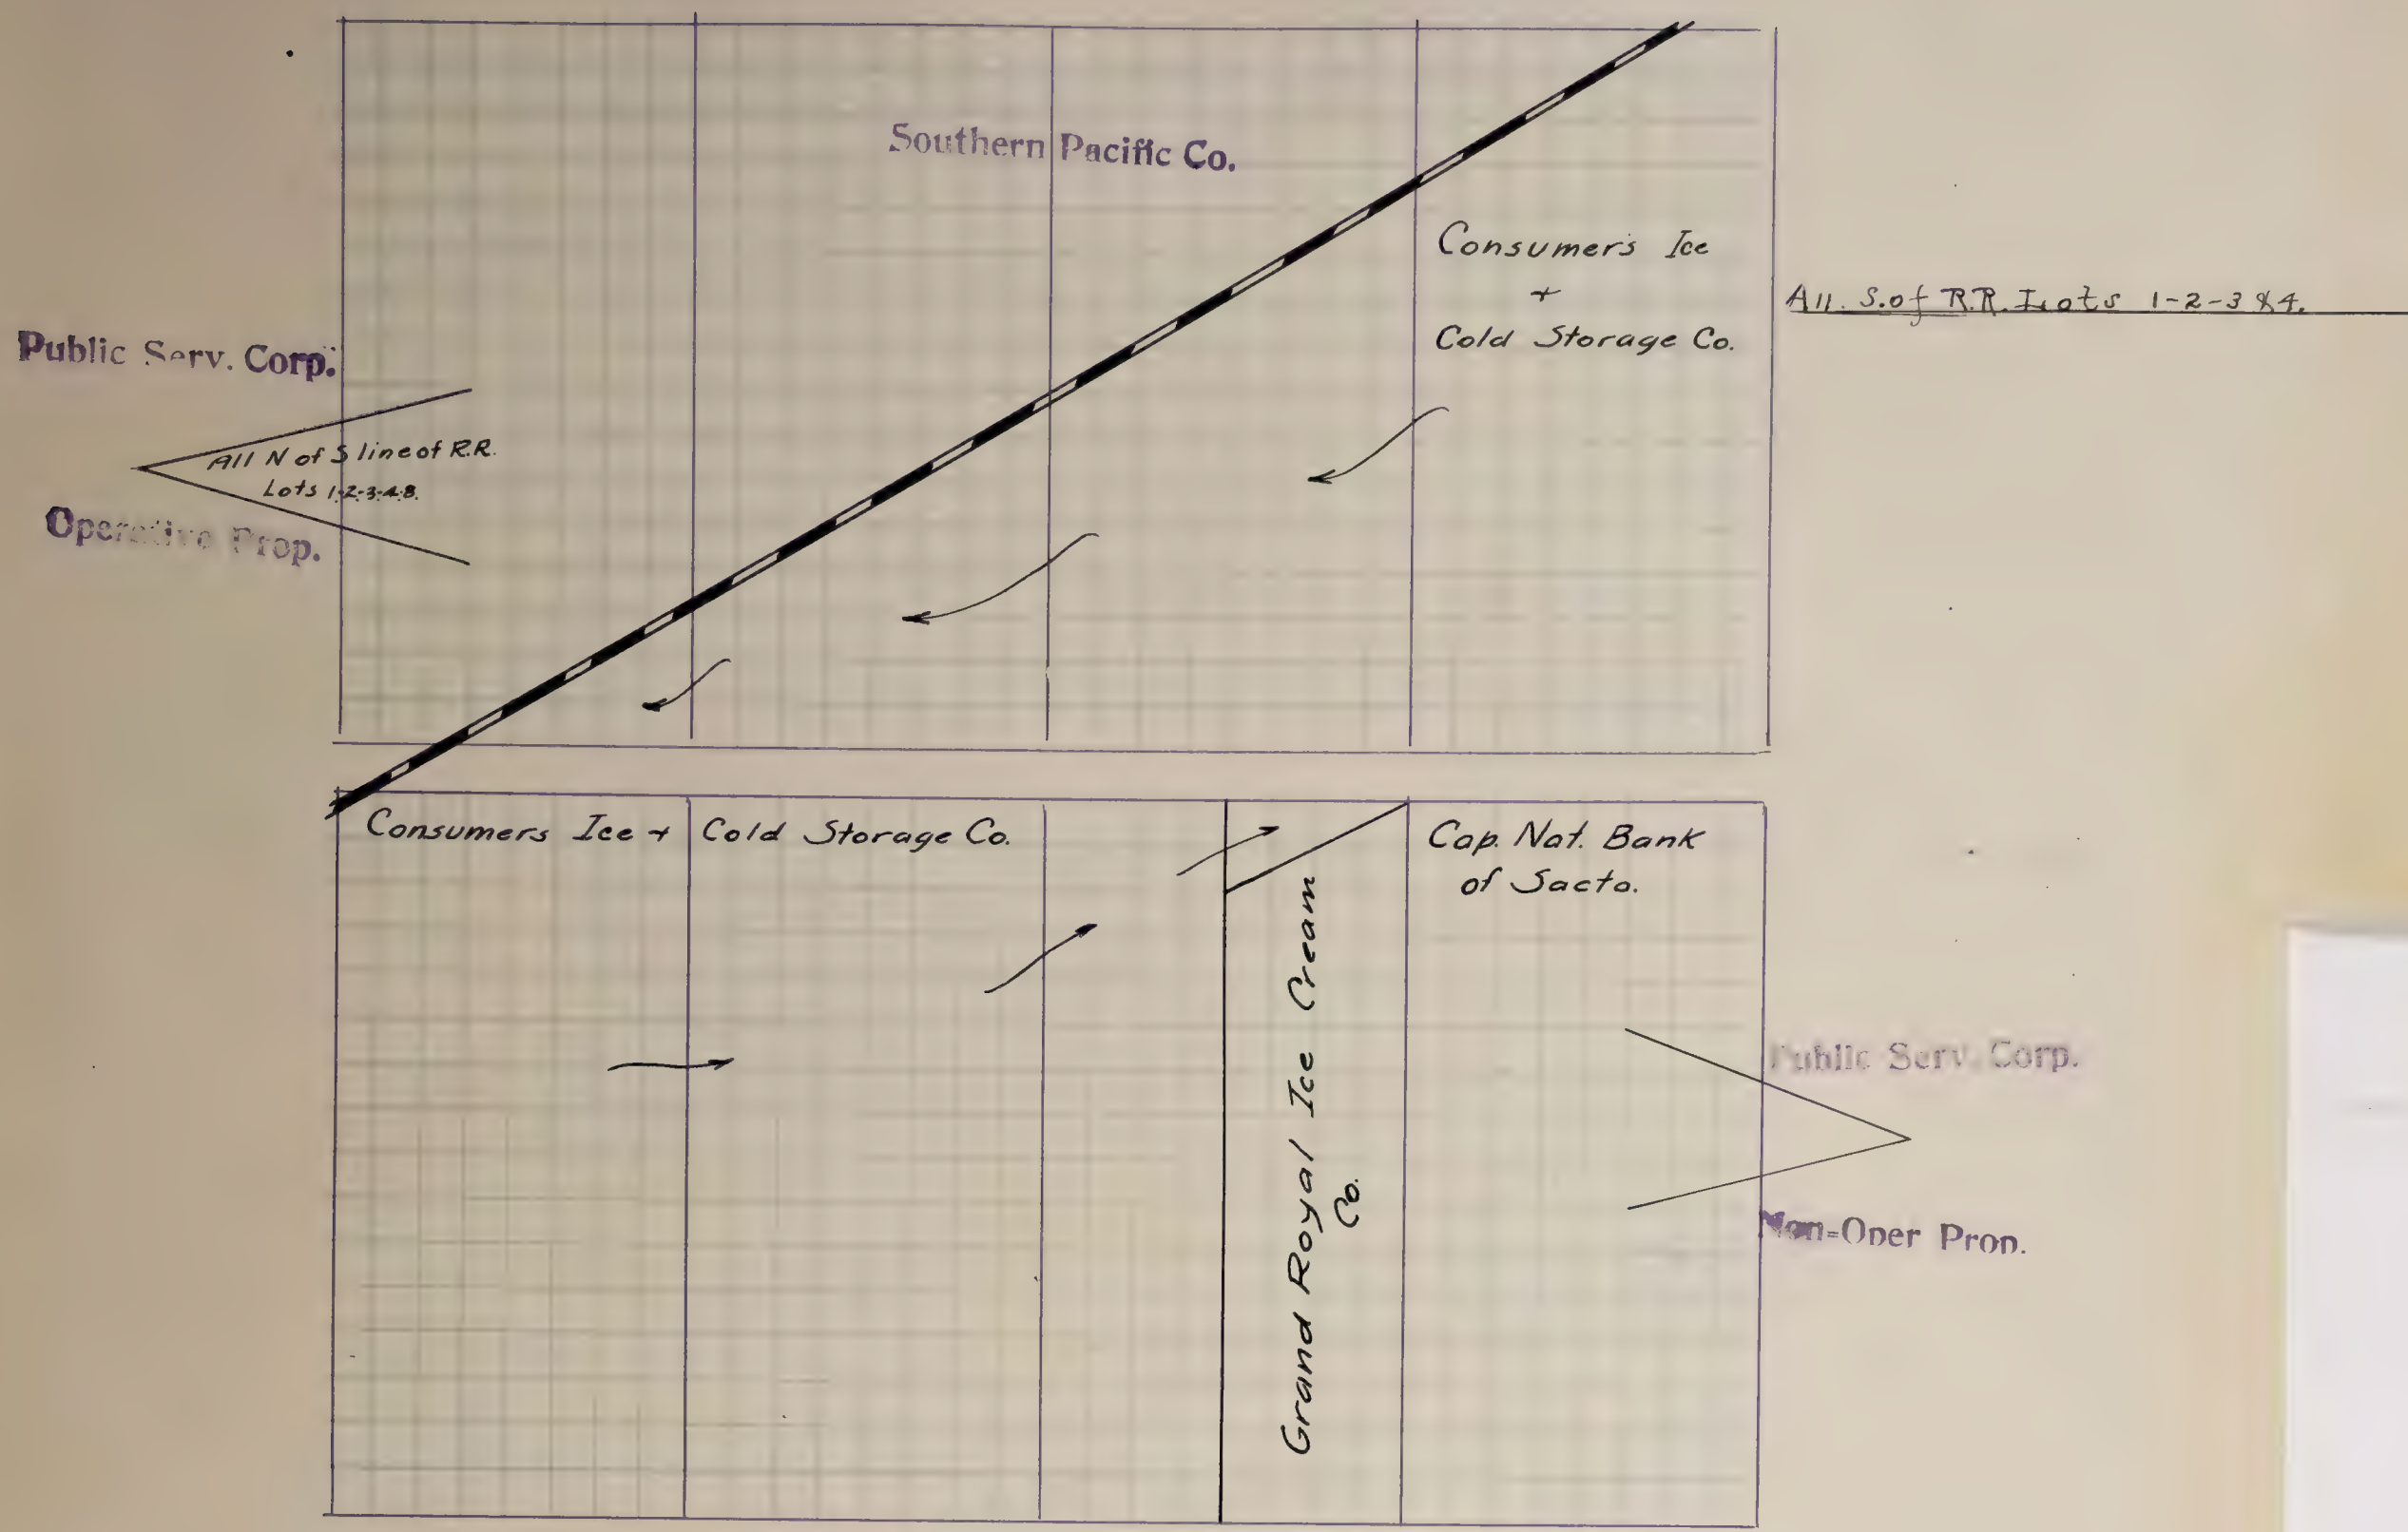 Southern Pacific Co.
Consumers Ice
+
Cold Storage Co.
All. S. of R.R. Lots 1-2-3 & 4.
Public Serv. Corp.
All N of S line of R.R.
Lots 1-2-3-4-8.
Operative Prop.
Consumers Ice + Cold Storage Co.
Cap. Nat. Bank
of Sacto.
Grand Royal Ice Cream
Co.
Public Serv. Corp.
Non-Oper Prop.